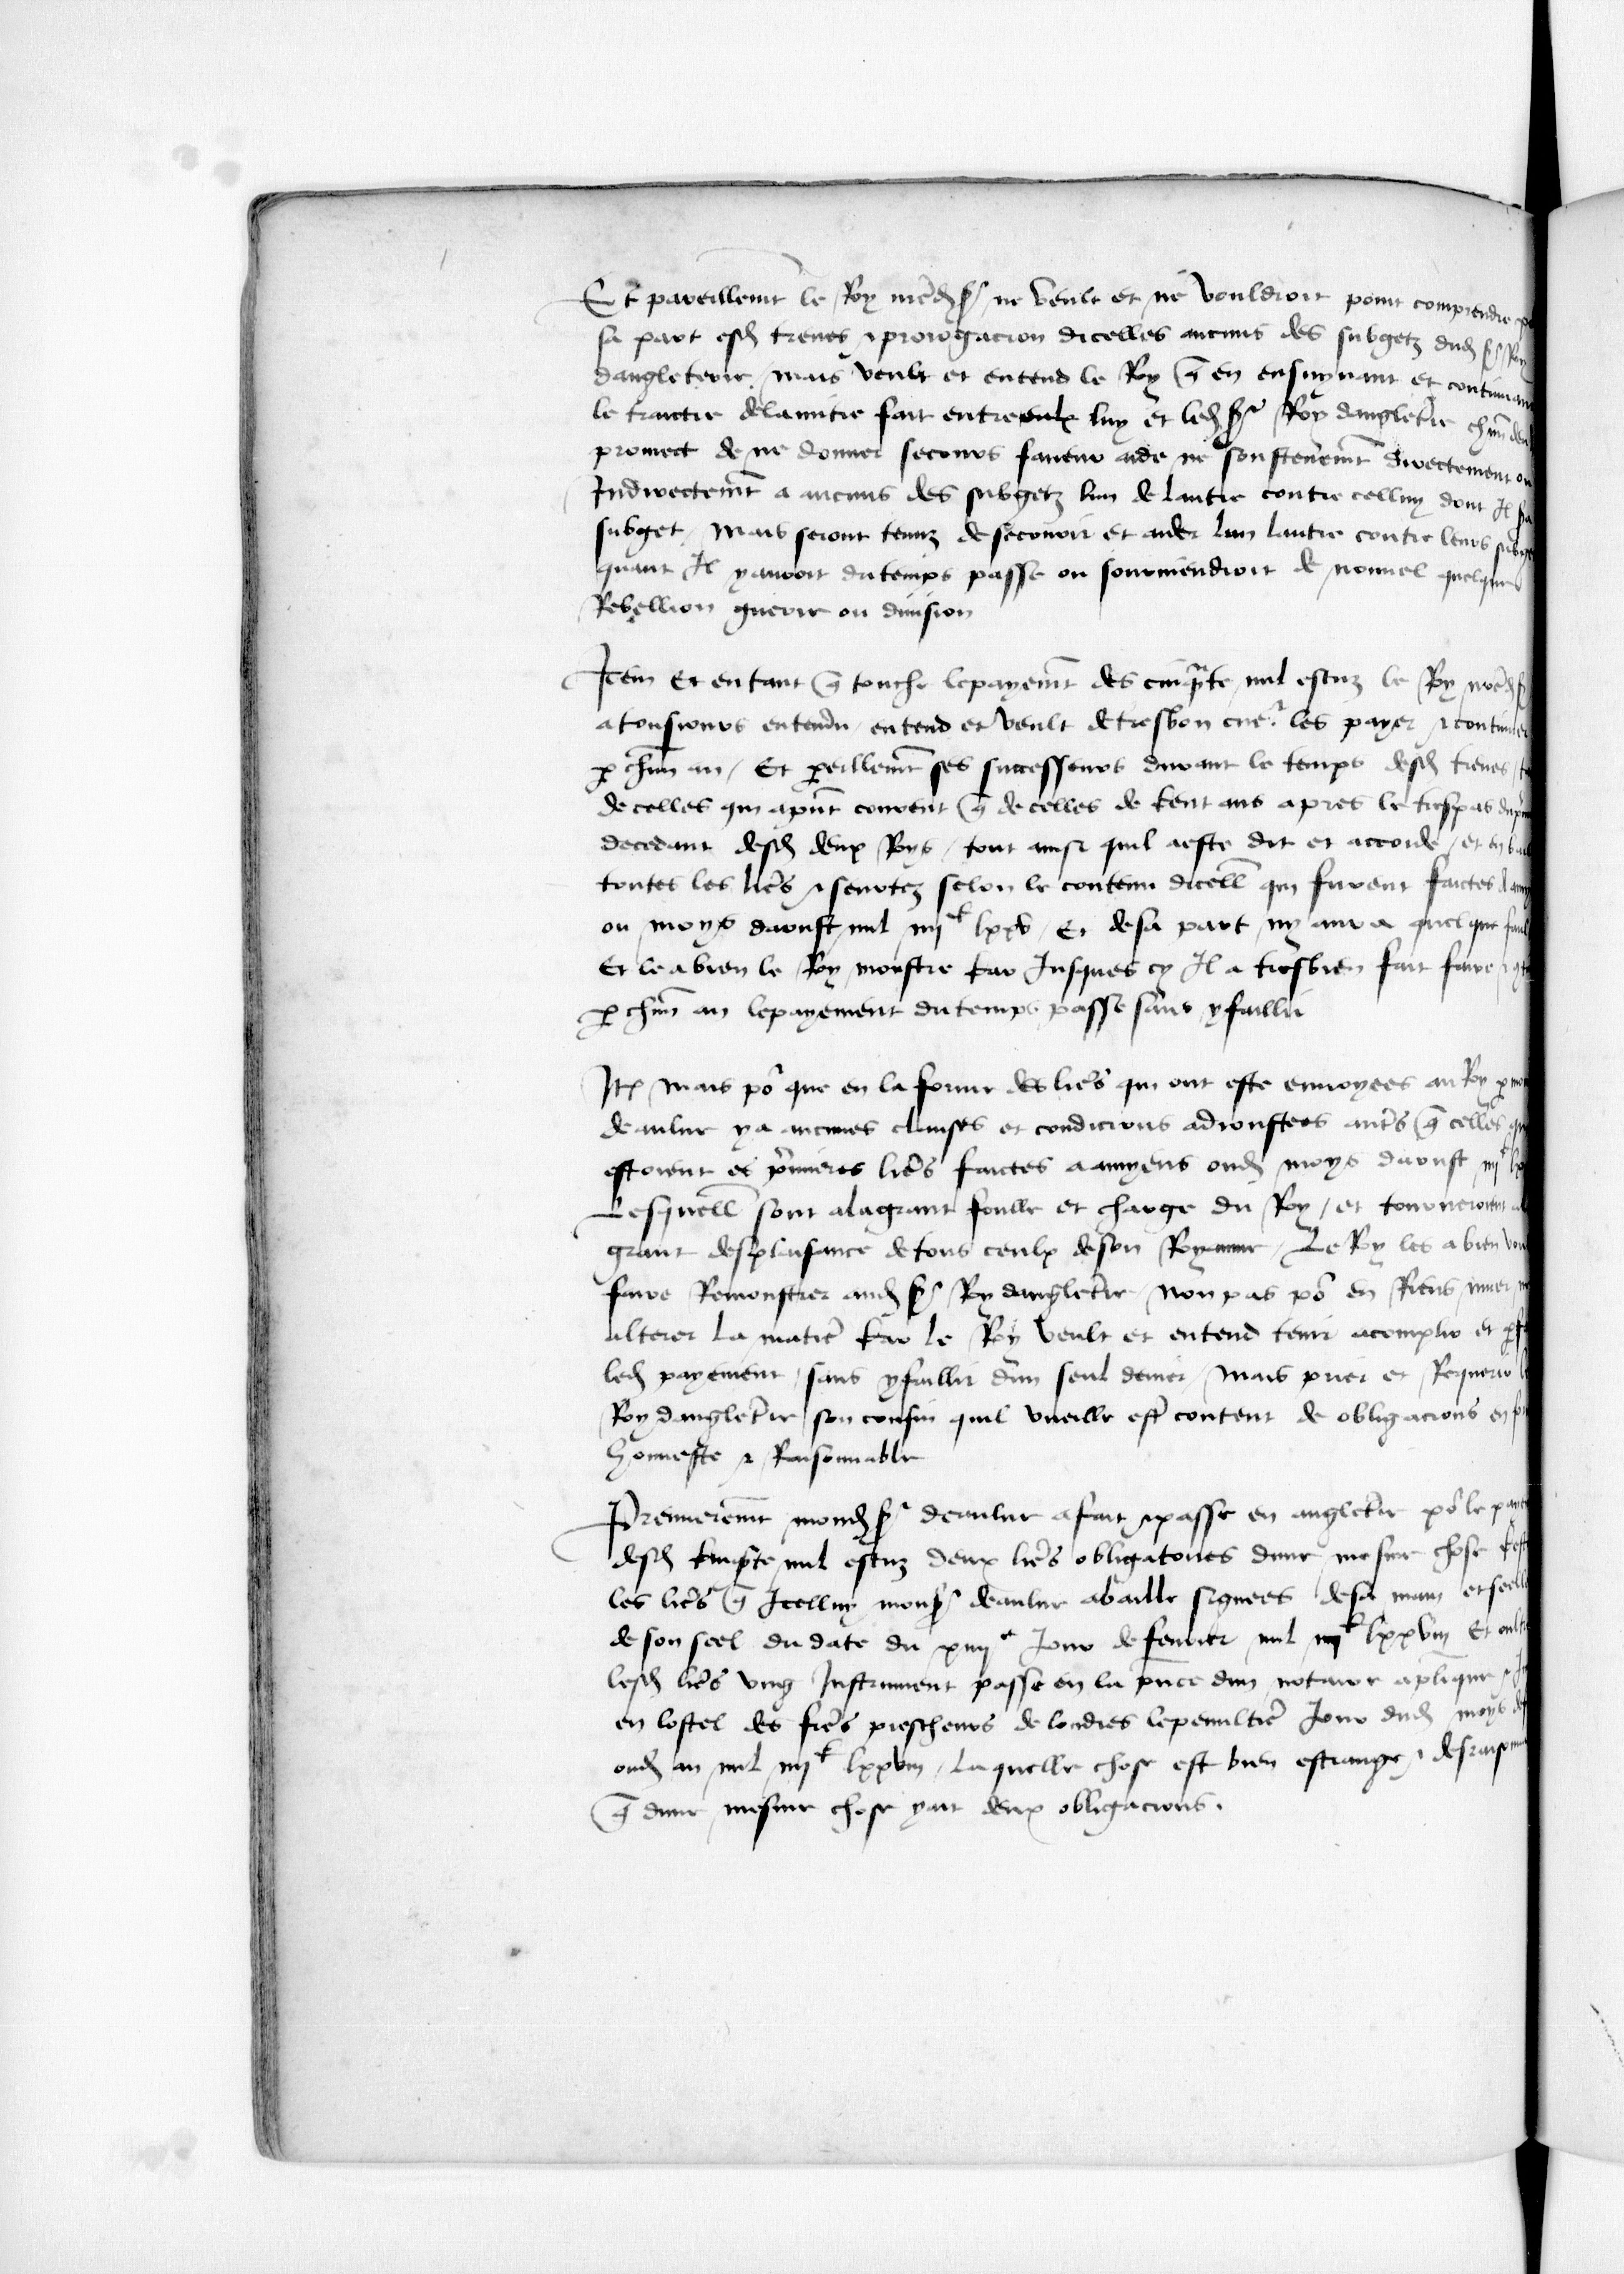 Et pareillemt le Roy nredsr ne veult et ne vouldroit point comprendre
sa part esd treves & prorogacion dicelles aucuns des subgetz dud sr Roy
dangleterre / mais veult et entend le Roy q en ensuyvant et continuant
le traictie delamitie fait entre eulx luy et led sr Roy dangletre chun
promect de ne donner secours faveur aide ne soustenemt directement ou
Indirectemt a aucuns des subgetz lun de lautre contre celluy dont Il
subget / Mais seront tenuz de secourir et aider lun lautre contre leurs
quant Il y auroit du temps passe ou sourviendroit de nouvel quelque
Rebellion guerre ou division
Item Et en tant q touche le payemt des cinqte mil escuz le Roy nred sr
a tousiours entendu / entend et veult de tresbon cuer les payer & continuer
p chun an / Et peillemt ses successeurs durant le temps desd treves
de celles qui apnt courent q de celles de cent ans apres le trespas
decedant desd deux Roys / tout ainsi quil a este dit et accorde / et en
toutes les lres & seurtez selon le contenu dicell qui furent faictes
ou moys daoust mil iiijc lxxv / Et de sa part ny aura quelque
Et le a bien le Roy monstre car Jusques cy Il a tresbien fait faire
p chun an le payement du temps passe sans y faillir
Itm Mais por que en la forme des lres qui ont este envoyees au Roy p
deaulne y a aucunes clauses et condicions adioustees autrs q celles
estoient es prmieres lres faictes a amyens oud moys daoust
Lesquell sont a la grant foulle et charge du Roy / et tourneroient
grant desplaisance de tous ceulx de son Royaume / Le Roy les a bien
faire Remonstrer aud sr Roy dangletre / Non pas por en Riens muer
alterer la matiere / Car le Roy veult et entend tenir acomplir et
led payement / sans y faillir dun seul denier / Mais prier et Requerir
Roy dangletre son cousin quil vueille estre content de obligacions en
honneste & Raisonnable
Premieremt mond sr deaulne a fait & passe en angletre por le
desd cinqte mil escuz deux lres obligatoires dune mesme chose
les lres q Icelluy monsr deaulne a baille signees de sa main et
de son seel du date du xiiije Jour de fevrier mil iiijc lxxviij Et
lesd lres ung Instrument passe en la pnce dun notaire aplique
en lostel des fres prescheurs de londres le penultiesme Jour dud moys
oud an mil iiijc lxxviij / laquelle chose est bien estrange & desraisonna
q dune mesme chose y ait deux obligacions.